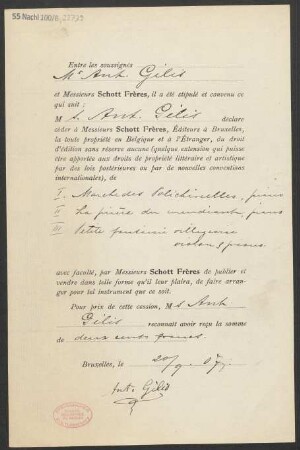 55 Nachl 100/B,
Entre les soussignés
Mr Ant. Gilis
et Messieurs Schott Frères, il a été stipulé et convenu ce
qui suit :
M r Ant. Gilis déclare
céder à Messieurs Schott Frères, Éditeurs à Bruxelles,
la toute propriété en Belgique et à l'Étranger, du droit
d'édition sans réserve aucune (quelque extension qui puisse
être apportée aux droits de propriété littéraire et artistique
par des lois postérieures ou par de nouvelles conventions
internationales), de
I. Marche des Polichinelles, piano
II La prière du mendiant, piano
III Petite fantaisie villageoise
violon & piano.
avec faculté, par Messieurs Schott Frères de publier et
vendre dans telle forme qu'il leur plaira, de faire arran-
ger pour tel instrument que ce soit.
Pour prix de cette cession, M r Ant
Gilis reconnait avoir reçu la somme
de deux cents francs
Bruxelles, le 20/9. 07
Ant. Gilis